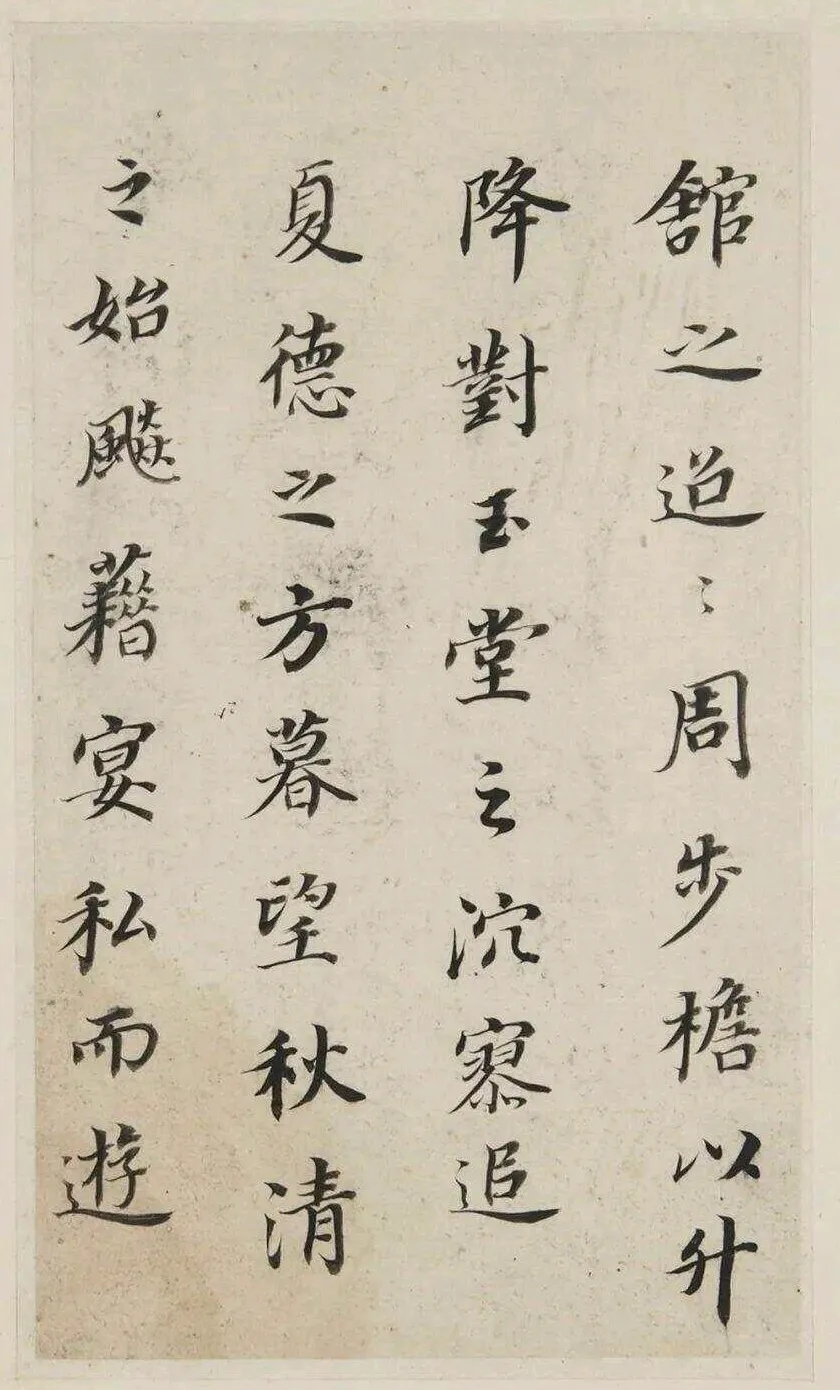 舘之迢〻周步檐以升
降對玉堂之沉寥追
夏德之方暮望秋清
之始飈藉宴私而遊